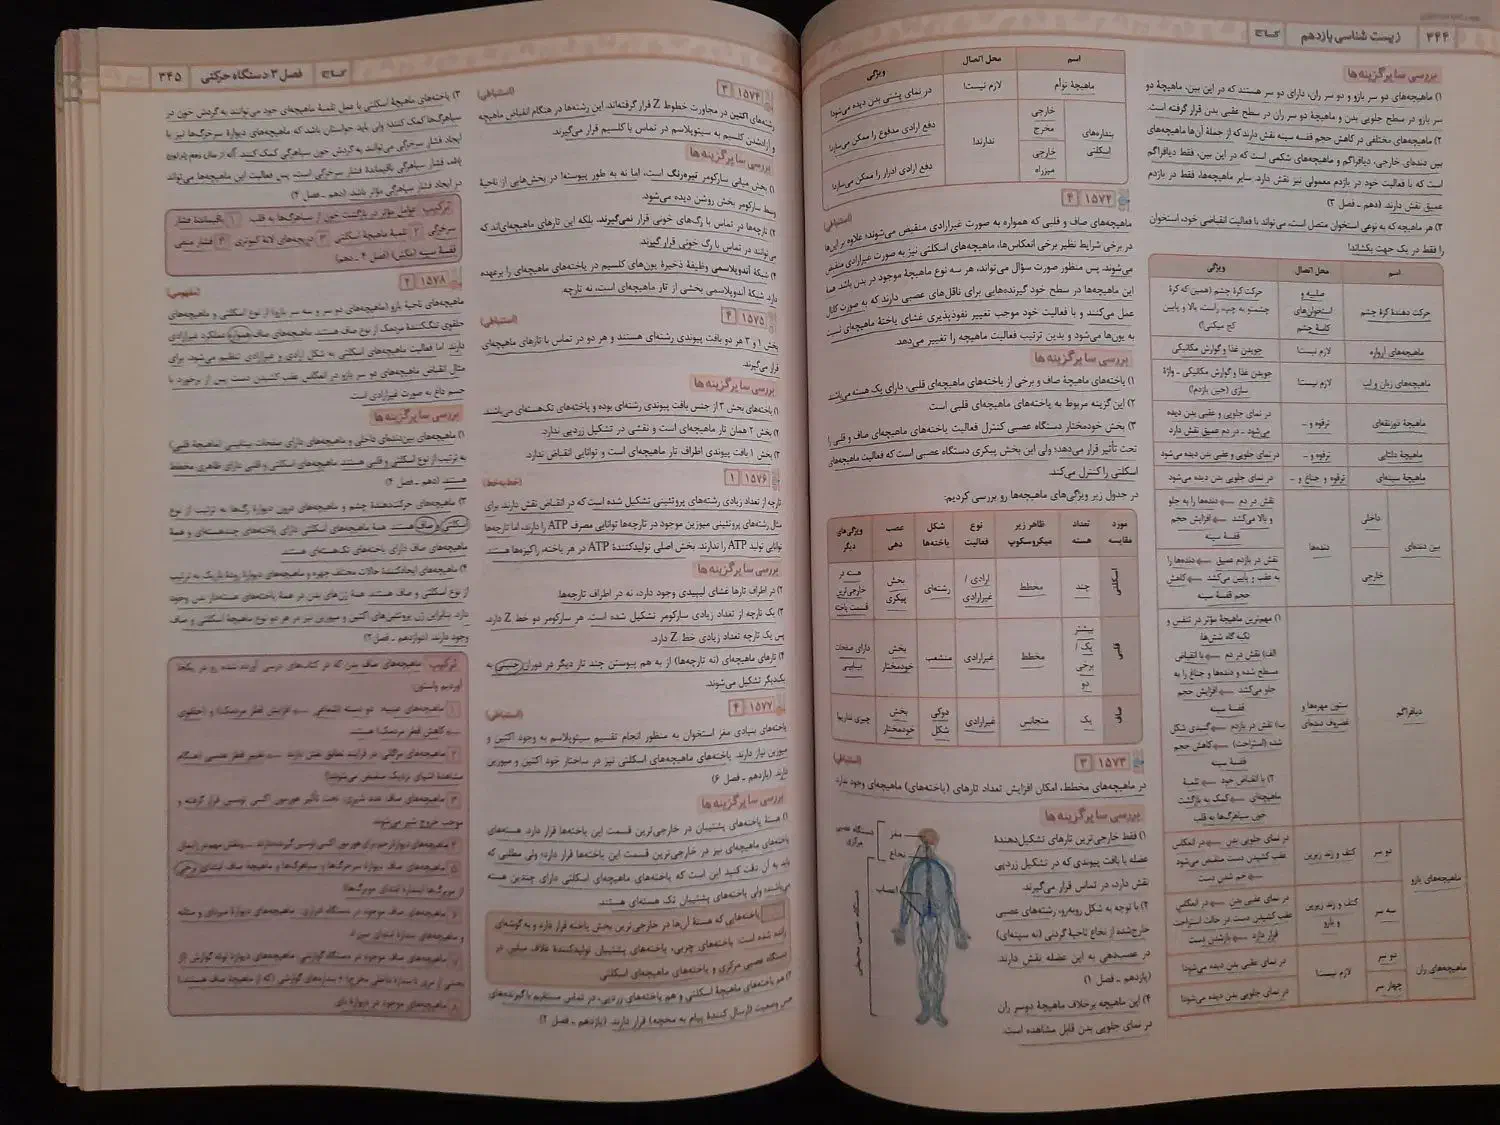 ۳۴۴
زیست شناسی یازدهم
گاج
بررسی سایر گزینه‌ها
۱) ماهیچه‌های دو سر بازو و دو سر ران، دارای دو سر هستند که در این بین، ماهیچهٔ دو
سر بازو در سطح جلویی بدن و ماهیچهٔ دو سر ران در سطح عقبی بدن قرار گرفته است.
۲) ماهیچه‌های مختلفی در کاهش حجم قفسه سینه نقش دارند که از جملهٔ آن‌ها ماهیچه‌های
بین دنده‌ای خارجی، دیافراگم و ماهیچه‌های شکمی است که در این بین، فقط دیافراگم
است که با فعالیت خود در بازدم معمولی نیز نقش دارد. سایر ماهیچه‌ها، فقط در بازدم
عمیق نقش دارند. (دهم ـ فصل ۳)
۳) هر ماهیچه که به نوعی استخوان متصل است، می‌تواند با فعالیت انقباضی خود، استخوان
را فقط در یک جهت بکشاند!
اسم محل اتصال ویژگی
حرکت دهندهٔ کرهٔ چشم صلبیه و استخوان‌های کاسهٔ چشم حرکت کرهٔ چشم (همین که کرهٔ چشمتو به چپ، راست، بالا و پایین کج میکنی!)
ماهیچه‌های آرواره لازم نیست! جویدن غذا و گوارش مکانیکی
ماهیچه‌های زبان و لب لازم نیست! جویدن غذا و گوارش مکانیکی ـ واژه سازی (حین بازدم!)
ماهیچهٔ ذوزنقه‌ای ترقوه و ـ در نمای جلویی و عقبی بدن دیده می‌شود ـ در دم عمیق نقش دارد
ماهیچهٔ دلتایی ترقوه و ـ در نمای جلویی و عقبی بدن دیده می‌شود
ماهیچهٔ سینه‌ای ترقوه و جناغ و ـ در نمای جلویی بدن دیده می‌شود
بین دنده‌ای داخلی خارجی دنده‌ها
نقش در دم ← دنده‌ها را به جلو و بالا می‌کشد ← افزایش حجم قفسهٔ سینه
نقش در بازدم عمیق ← دنده‌ها را به عقب و پایین می‌کشد ← کاهش حجم قفسه سینه
دیافراگم ستون مهره‌ها و غضروف دنده‌ای
۱) مهم‌ترین ماهیچهٔ مؤثر در تنفس و تکیه گاه شش‌ها:
الف) نقش در دم ← با انقباض مسطح شده و دنده‌ها و جناغ را به جلو می‌کشد ← افزایش حجم قفسهٔ سینه
ب) نقش در بازدم ← گنبدی شکل شده (استراحت) ← کاهش حجم قفسهٔ سینه
۲) با انقباض خود ← تلمبهٔ ماهیچه‌ای ← کمک به بازگشت خون سیاهرگ‌ها به قلب
ماهیچه‌های بازو دو سر کتف و زند زیرین در نمای جلویی بدن ← در انعکاس عقب کشیدن دست منقبض می‌شود ← خم شدن دست
سه سر کتف و زند زیرین و بازو در نمای عقبی بدن ← در انعکاس عقب کشیدن دست در حالت استراحت قرار دارد ← بازشدن دست
ماهیچه‌های ران دو سر لازم نیست! در نمای عقبی بدن دیده می‌شود!
چهار سر در نمای جلویی بدن دیده می‌شود!
اسم محل اتصال ویژگی
ماهیچهٔ توأم لازم نیست! در نمای پشتی بدن دیده می‌شود!
بنداره‌های اسکلتی خارجی مخرج ندارند! دفع ارادی مدفوع را ممکن می‌سازد!
خارجی میزراه دفع ارادی ادرار را ممکن می‌سازد!
۴ (استنباطی)
ماهیچه‌های صاف و قلبی که همواره به صورت غیرارادی منقبض می‌شوند؛ علاوه بر این‌ها
در برخی شرایط نظیر برخی انعکاس‌ها، ماهیچه‌های اسکلتی نیز به صورت غیرارادی منقبض
می‌شوند. پس منظور صورت سؤال می‌تواند، هر سه نوع ماهیچهٔ موجود در بدن باشد. همهٔ
این ماهیچه‌ها در سطح خود گیرنده‌هایی برای ناقل‌های عصبی دارند که به صورت کانال
عمل می‌کنند و با فعالیت خود موجب تغییر نفوذپذیری غشای یاختهٔ ماهیچه‌ای نسبت
به یون‌ها می‌شود و بدین ترتیب فعالیت ماهیچه را تغییر می‌دهد
بررسی سایر گزینه‌ها
۱) یاخته‌های ماهیچهٔ صاف و برخی از یاخته‌های ماهیچه‌ای قلبی، دارای یک هسته می‌باشد
۲) این گزینه مربوط به یاخته‌های ماهیچه‌ای قلبی است.
۳) بخش خودمختار دستگاه عصبی کنترل فعالیت یاخته‌های ماهیچه‌ای صاف و قلبی را
تحت تأثیر قرار می‌دهد؛ ولی این بخش پیکری دستگاه عصبی است که فعالیت ماهیچه‌های
اسکلتی را کنترل می‌کند.
در جدول زیر ویژگی‌های ماهیچه‌ها رو بررسی کردیم:
مورد مقایسه تعداد هسته ظاهر زیر میکروسکوپ نوع فعالیت شکل یاخته‌ها عصب دهی ویژگی‌های دیگر
اسکلتی چند مخطط ارادی / غیرارادی رشته‌ای بخش پیکری هسته در خارجی‌ترین قسمت یاخته
قلبی بیشتر یک / برخی دو مخطط غیرارادی منشعب بخش خودمختار دارای صفحات بینابینی
صاف یک متجانس غیرارادی دوکی شکل بخش خودمختار چیزی نداریم!
۱۵۷۳ ۳ (استنباطی)
در ماهیچه‌های مخطط، امکان افزایش تعداد تارهای (یاخته‌های) ماهیچه‌ای وجود ندارد
بررسی سایر گزینه‌ها
۱) فقط خارجی‌ترین تارهای تشکیل‌دهندهٔ
عضله با بافت پیوندی که در تشکیل زردپی
نقش دارد، در تماس قرار می‌گیرند.
۲) با توجه به شکل روبه‌رو، رشته‌های عصبی
خارج‌شده از نخاع ناحیهٔ گردنی (نه سینه‌ای)
در عصب‌دهی به این عضله نقش دارند.
(یازدهم ـ فصل ۱)
۴) این ماهیچه برخلاف ماهیچهٔ دوسر ران
در نمای جلویی بدن قابل مشاهده است.
مغز
نخاع
اعصاب
دستگاه عصبی مرکزی
دستگاه عصبی محیطی
گاج
فصل ۳: دستگاه حرکتی
۳۴۵
۱۵۷۴ ۳ (استنباطی)
رشته‌های اکتین در مجاورت خطوط Z قرار گرفته‌اند. این رشته‌ها در هنگام انقباض ماهیچه
و آزادشدن کلسیم به سیتوپلاسم در تماس با کلسیم قرار می‌گیرند.
بررسی سایر گزینه‌ها
۱) بخش میانی سارکومر تیره‌رنگ است، اما نه به طور پیوسته! در بخش‌هایی از ناحیهٔ
وسط سارکومر بخش روشن دیده می‌شود.
۲) تارچه‌ها در تماس با رگ‌های خونی قرار نمی‌گیرند. بلکه این تارهای ماهیچه‌ای‌اند که
می‌توانند در تماس با رگ خونی قرار گیرند.
۴) شبکهٔ آندوپلاسمی وظیفهٔ ذخیرهٔ یون‌های کلسیم در یاخته‌های ماهیچه‌ای را برعهده
دارد. شبکهٔ آندوپلاسمی بخشی از تار ماهیچه‌ای است، نه تارچه
۱۵۷۵ ۴ (استنباطی)
بخش ۱ و ۳ هر دو بافت پیوندی رشته‌ای هستند و هر دو در تماس با تارهای ماهیچه‌ای
قرار می‌گیرند.
بررسی سایر گزینه‌ها
۱) یاخته‌های بخش ۳ از جنس بافت پیوندی رشته‌ای بوده و یاخته‌های تک‌هسته‌ای می‌باشند
۲) بخش ۲ همان تار ماهیچه‌ای است و نقشی در تشکیل زردپی ندارد.
۳) بخش ۱ بافت پیوندی اطراف تار ماهیچه‌ای است و توانایی انقباض ندارد.
۱۵۷۶ ۱ (خط‌به‌خط)
تارچه از تعداد زیادی رشته‌های پروتئینی تشکیل شده است که در انقباض نقش دارند. برای
مثال رشته‌های پروتئینی میوزین موجود در تارچه‌ها توانایی مصرف ATP را دارند، اما تارچه‌ها
توانایی تولید ATP را ندارند. بخش اصلی تولیدکنندهٔ ATP در هر یاخته، راکیزه‌ها هستند
بررسی سایر گزینه‌ها
۲) در اطراف تارها غشای لیپیدی وجود دارد، نه در اطراف تارچه‌ها.
۳) یک تارچه از تعداد زیادی سارکومر تشکیل شده است. هر سارکومر دو خط Z دارد،
پس یک تارچه تعداد زیادی خط Z دارد.
۴) تارهای ماهیچه‌ای (نه تارچه‌ها) از به هم پیوستن چند تار دیگر در دوران جنینی به
یکدیگر تشکیل می‌شوند.
۱۵۷۷ ۴ (استنباطی)
یاخته‌های بنیادی مغز استخوان به منظور انجام تقسیم سیتوپلاسم به وجود اکتین و
میوزین نیاز دارند. یاخته‌های ماهیچه‌های اسکلتی نیز در ساختار خود اکتین و میوزین
دارند. (یازدهم ـ فصل ۶)
بررسی سایر گزینه‌ها
۱) هستهٔ یاخته‌های پشتیبان در خارجی‌ترین قسمت این یاخته‌ها قرار دارد. هسته‌های
یاخته‌های ماهیچه‌ای نیز در خارجی‌ترین قسمت این یاخته‌ها قرار دارد؛ ولی مطلبی که
باید به آن دقت کنید این است که یاخته‌های ماهیچه‌ای اسکلتی دارای چندین هسته
می‌باشند؛ ولی یاخته‌های پشتیبان تک هسته‌ای هستند.
یاخته‌هایی که هستهٔ آن‌ها در خارجی‌ترین بخش یاخته قرار دارد و به گوشه‌ای
رانده شده است: یاخته‌های چربی، یاخته‌های پشتیبان تولیدکنندهٔ غلاف میلین در
دستگاه عصبی مرکزی و یاخته‌های ماهیچه‌ای اسکلتی
۲) هم یاخته‌های ماهیچهٔ اسکلتی و هم یاخته‌های زردپی، در تماس مستقیم با گیرنده‌های
حس وضعیت (ارسال کنندهٔ پیام به مخچه) قرار دارند. (یازدهم ـ فصل ۲)
۳) یاخته‌های ماهیچهٔ اسکلتی با عمل تلمبهٔ ماهیچه‌ای خود می‌توانند به گردش خون در
سیاهرگ‌ها کمک کنند؛ ولی باید حواستان باشد که ماهیچه‌های دیوارهٔ سرخرگ‌ها نیز با
ایجاد فشار سرخرگی می‌توانند به گردش خون سیاهرگی کمک کنند.
فشار سیاهرگی باقیماندهٔ فشار سرخرگی است، پس فعالیت این ماهیچه‌ها می‌تواند
در ایجاد فشار سیاهرگی مؤثر باشد. (دهم ـ فصل ۴)
ترکیب عوامل مؤثر در بازگشت خون از سیاهرگ‌ها به قلب ۱ باقیماندهٔ فشار
سرخرگی ۲ تلمبهٔ ماهیچهٔ اسکلتی ۳ دریچه‌های لانه کبوتری ۴ فشار منفی
قفسهٔ سینه (مکش) (فصل ۴ ـ دهم)
۱۵۷۸ ۲ (مفهومی)
ماهیچه‌های ناحیهٔ بازو (ماهیچه‌های دو سر و سه سر بازو) از نوع اسکلتی و ماهیچه‌های
حلقوی تنگ‌کنندهٔ مردمک از نوع صاف هستند. ماهیچه‌های صاف همواره عملکرد غیرارادی
دارند. اما فعالیت ماهیچه‌های اسکلتی به شکل ارادی و غیرارادی تنظیم می‌شود. برای
مثال انقباض ماهیچه‌های دو سر بازو در انعکاس عقب کشیدن دست پس از برخورد با
جسم داغ به صورت غیرارادی است.
بررسی سایر گزینه‌ها
۱) ماهیچه‌های بین‌دنده‌ای داخلی و ماهیچه‌های دارای صفحات بینابینی (ماهیچهٔ قلبی)
به ترتیب از نوع اسکلتی و قلبی هستند. ماهیچه‌های اسکلتی و قلبی دارای ظاهری مخطط
هستند. (دهم ـ فصل ۴)
۳) ماهیچه‌های حرکت‌دهندهٔ چشم و ماهیچه‌های درون دیوارهٔ رگ‌ها به ترتیب از نوع
اسکلتی و صاف هستند. همهٔ ماهیچه‌های اسکلتی دارای یاخته‌های چندهسته‌ای و همهٔ
ماهیچه‌های صاف دارای یاخته‌های تک‌هسته‌ای هستند
۴) ماهیچه‌های ایجادکنندهٔ حالات مختلف چهره و ماهیچه‌های دیوارهٔ رودهٔ باریک به ترتیب
از نوع اسکلتی و صاف هستند. همهٔ ژن‌های بدن در همهٔ یاخته‌های هسته‌دار بدن وجود
دارد. بنابراین ژن پروتئین‌های اکتین و میوزین نیز در هر دو نوع ماهیچهٔ اسکلتی و صاف
وجود دارند. (دوازدهم ـ فصل ۲)
ترکیب ماهیچه‌های صاف بدن که در کتاب‌های درسی آورده شده رو در یکجا
آوردیم واستون:
۱ ماهیچه‌های عنبیه: دو دسته (شعاعی ← افزایش قطر مردمک) و (حلقوی
← کاهش قطر مردمک) هستند.
۲ ماهیچه‌های مژگانی در فرایند تطابق نقش دارند ← تغییر قطر عدسی (هنگام
مشاهدهٔ اشیای نزدیک منقبض می‌شوند!)
۳ ماهیچه‌های صاف غدد شیری، تحت تأثیر هورمون اکسی توسین قرار گرفته و
موجب خروج شیر می‌شوند
۵ ماهیچه‌های صاف دیوارهٔ سرخرگ‌ها و سیاهرگ‌ها و ماهیچهٔ صاف ابتدای برخی
از مویرگ‌ها (بندارهٔ ابتدای مویرگ‌ها)
۶ ماهیچه‌های صاف موجود در دستگاه ادراری. ماهیچه‌های دیوارهٔ میزنای و مثانه
و ماهیچه‌های بندارهٔ ابتدای میزراه
۷ ماهیچه‌های صاف موجود در دستگاه گوارش. ماهیچه‌های دیوارهٔ لولهٔ گوارش (از
۸ ماهیچه‌های موجود در دیوارهٔ نای